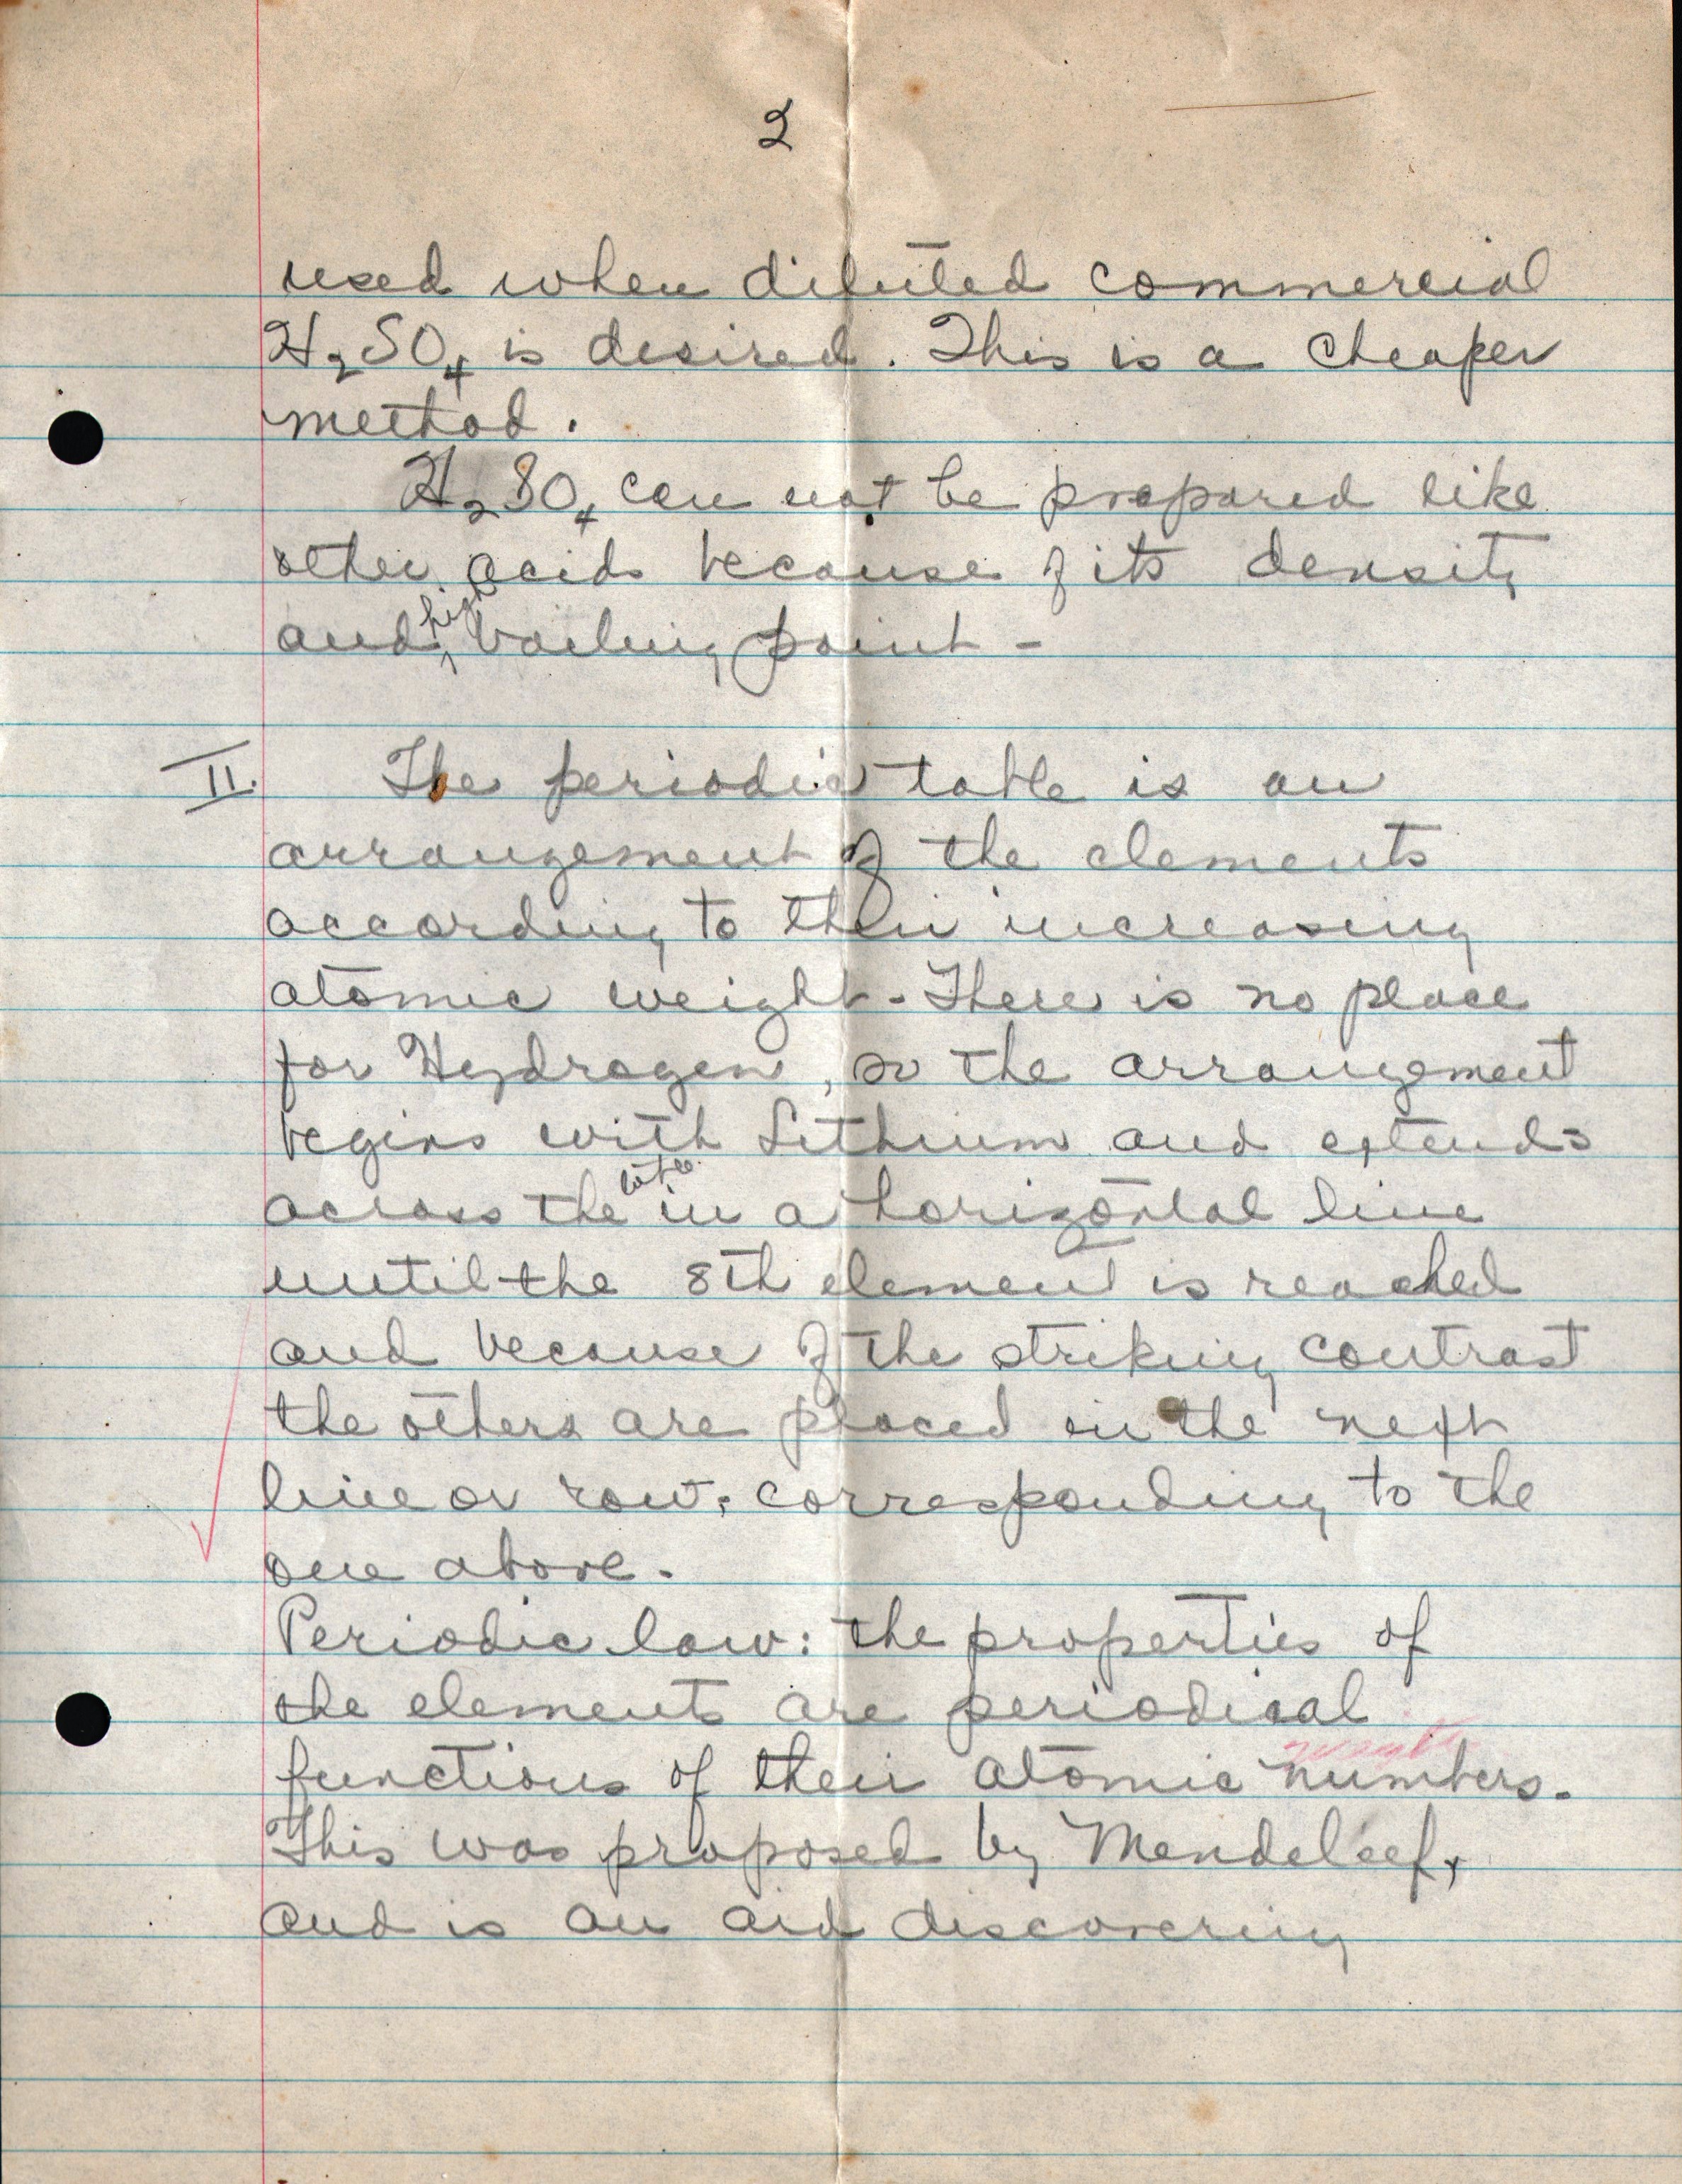 2
used when diluted commercial
H₂SO₄ is desired. This is a cheaper
method.
H₂SO₄ can not be prepared like
other acids because of its density
and high boiling point -
II. The periodic table is an
arrangement of the elements
according to their increasing
atomic weight. There is no place
for Hydrogen, so the arrangement
begins with Lithium and extends
across the in a horizontal line
until the 8th element is reached
and because of the striking contrast
the others are placed in the next
line or row, corresponding to the
one above.
Periodic law: the properties of
the elements are periodical
functions of their atomic numbers.
This was proposed by Mendeleef,
and is an aid discovering